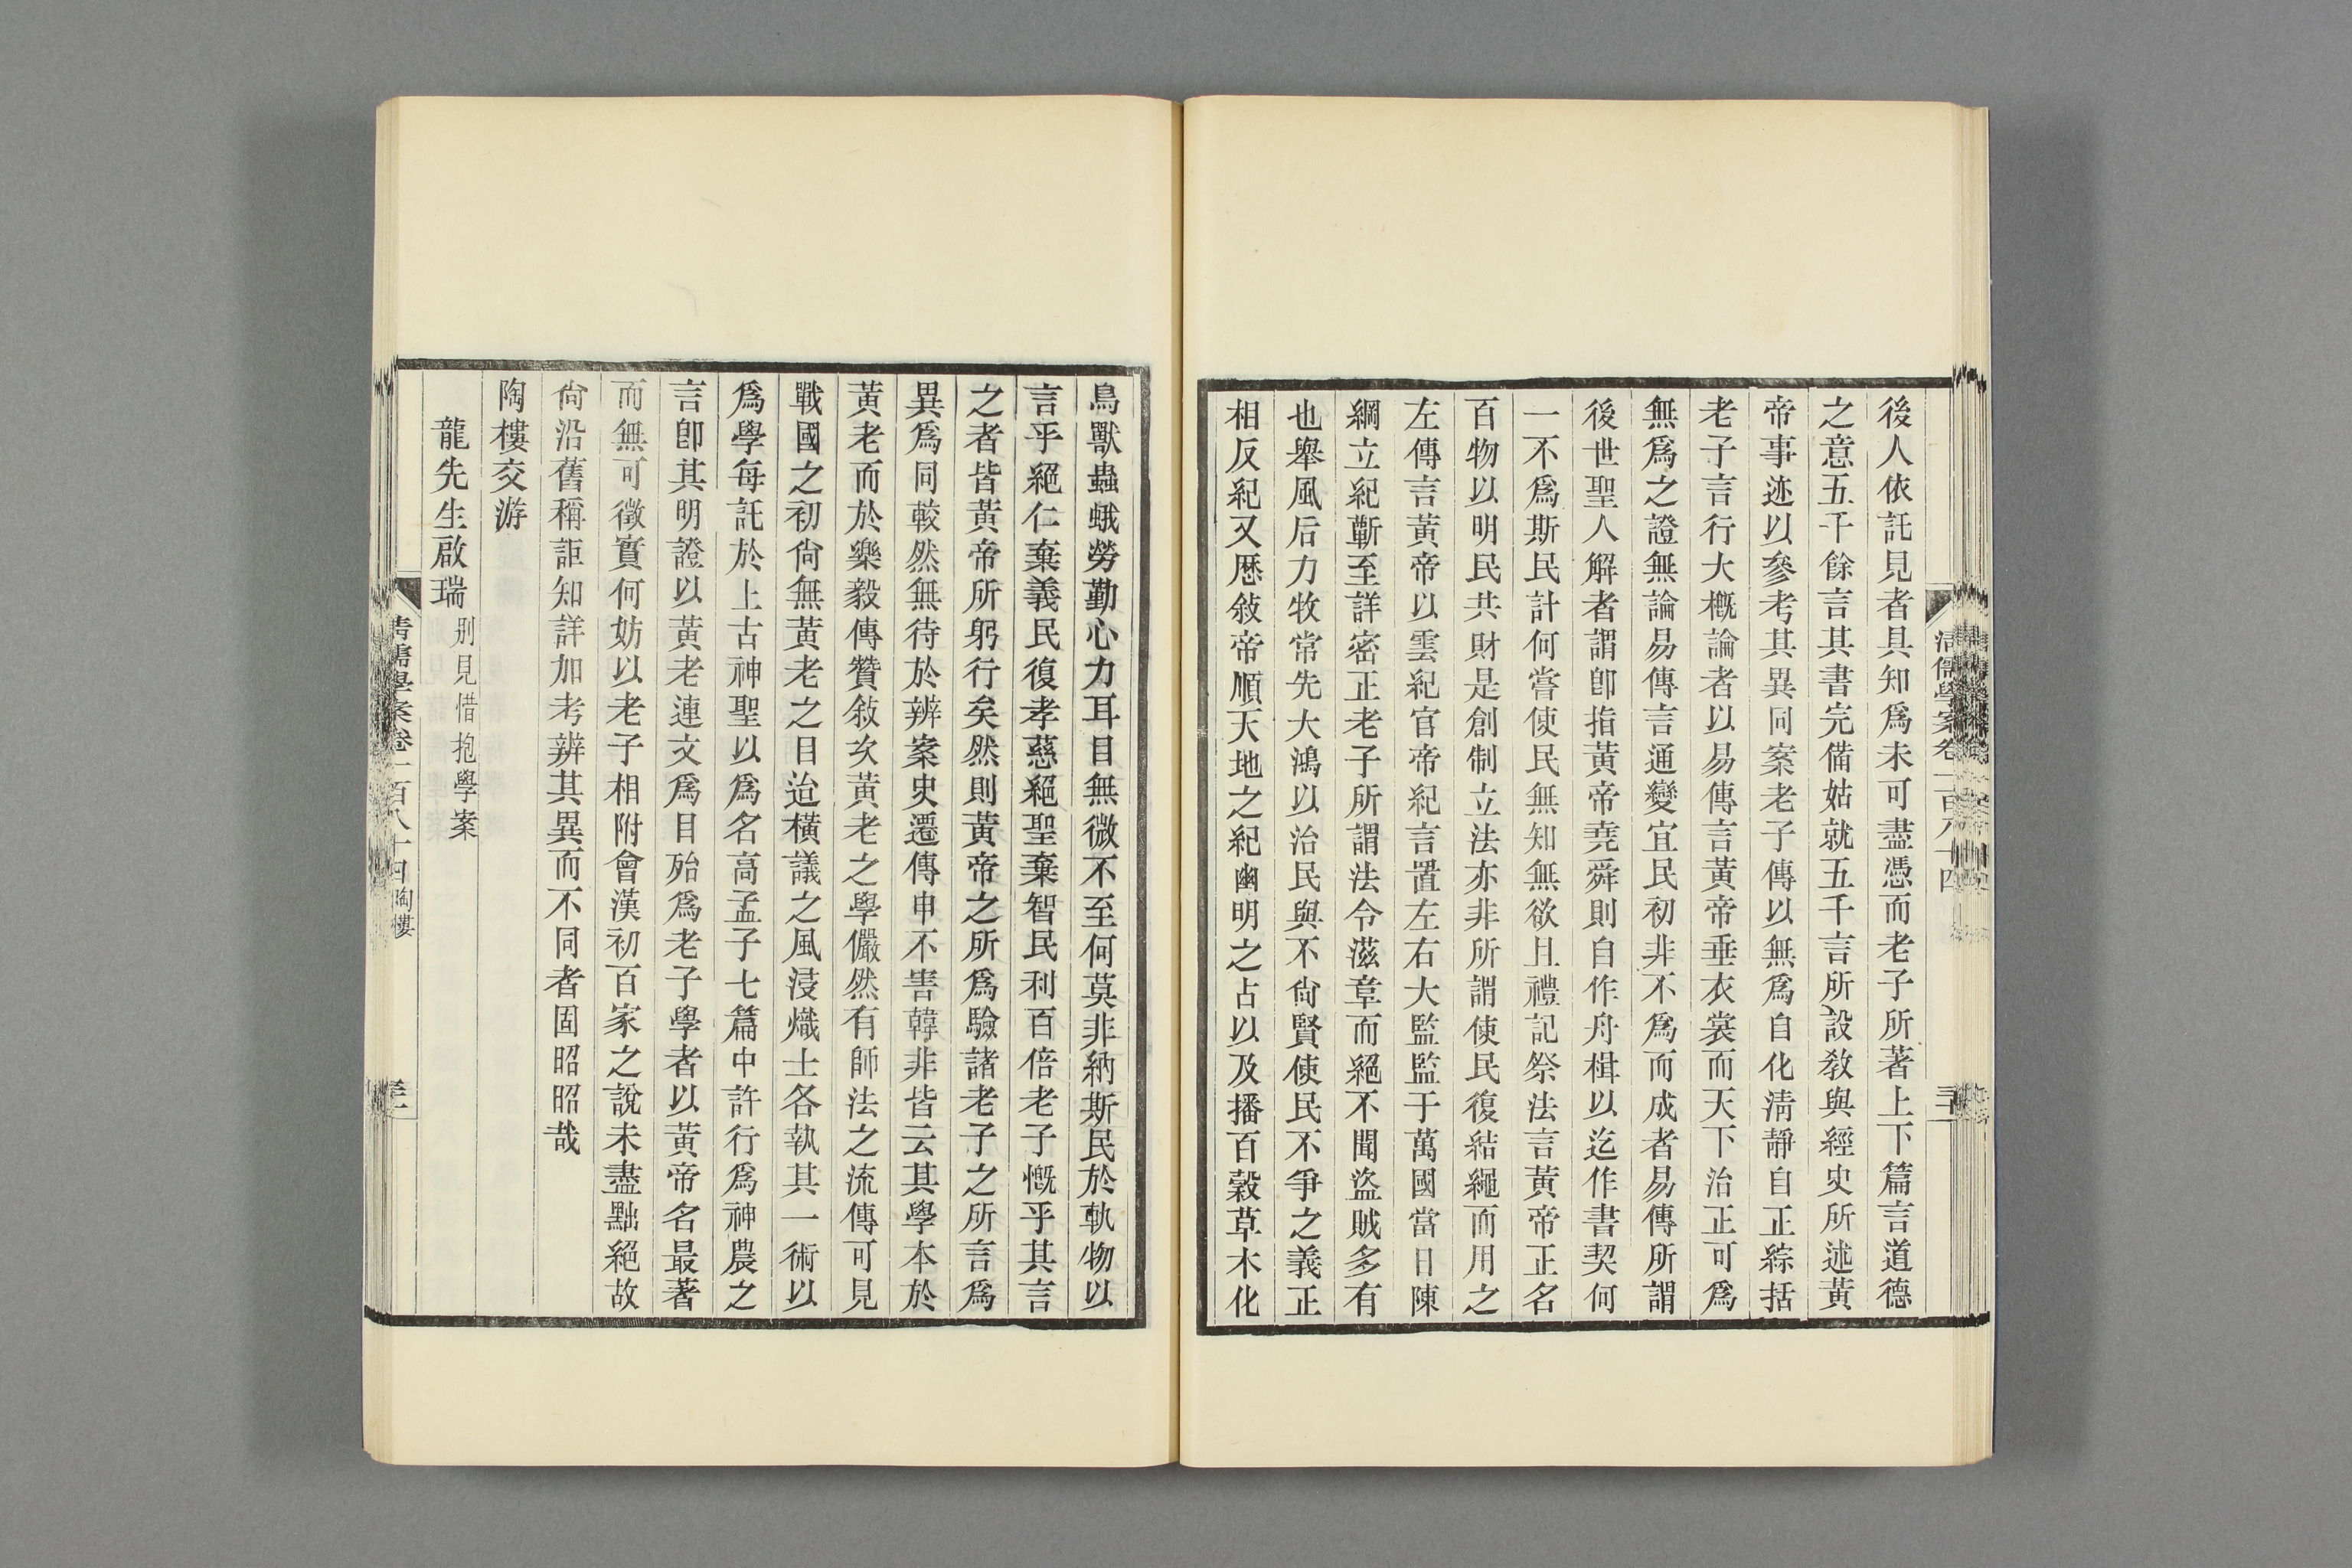 後人依託見者具知爲未可盡憑而老子所著上下篇言道德
之意五千餘言其書完備姑就五千言所設敎與經史所述黃
帝事迹以參考其異同案老子傳以無爲自化淸靜自正綜括
老子言行大槪論者以易傳言黃帝垂衣裳而天下治正可爲
無爲之證無論易傳言通變宜民初非不爲而成者易傳所謂
後世聖人解者謂卽指黃帝堯舜則自作舟楫以迄作書契何
一不爲斯民計何嘗使民無知無欲且禮記祭法言黃帝正名
百物以明民共財是創制立法亦非所謂使民復結繩而用之
左傳言黃帝以雲紀官帝紀言置左右大監監于萬國當日陳
綱立紀斬至詳密正老子所謂法令滋章而絕不聞盜賊多有
也舉風后力牧常先大鴻以治民與不尙賢使民不爭之義正
相反紀又歷敍帝順天地之紀幽明之占以及播百穀草木化
鳥獸蟲蛾勞勤心力耳目無微不至何莫非納斯民於軌物以
言乎絕仁棄義民復孝慈絕聖棄智民利百倍老子慨乎其言
之者皆黃帝所躬行矣然則黃帝之所爲驗諸老子之所言爲
異爲同較然無待於辨案史遷傳申不害韓非皆云其學本於
黃老而於樂毅傳贊敍次黃老之學儼然有師法之流傳可見
戰國之初尙無黃老之目迨橫議之風浸熾士各執其一術以
爲學每託於上古神聖以爲名高孟子七篇中許行爲神農之
言卽其明證以黃老連文爲目殆爲老子學者以黃帝名最著
而無可徵實何妨以老子相附會漢初百家之說未盡黜絕故
尙沿舊稱詎知詳加考辨其異而不同者固昭昭哉
陶樓交游
龍先生啟瑞 別見惜抱學案
淸儒學案卷一百八十四 陶樓